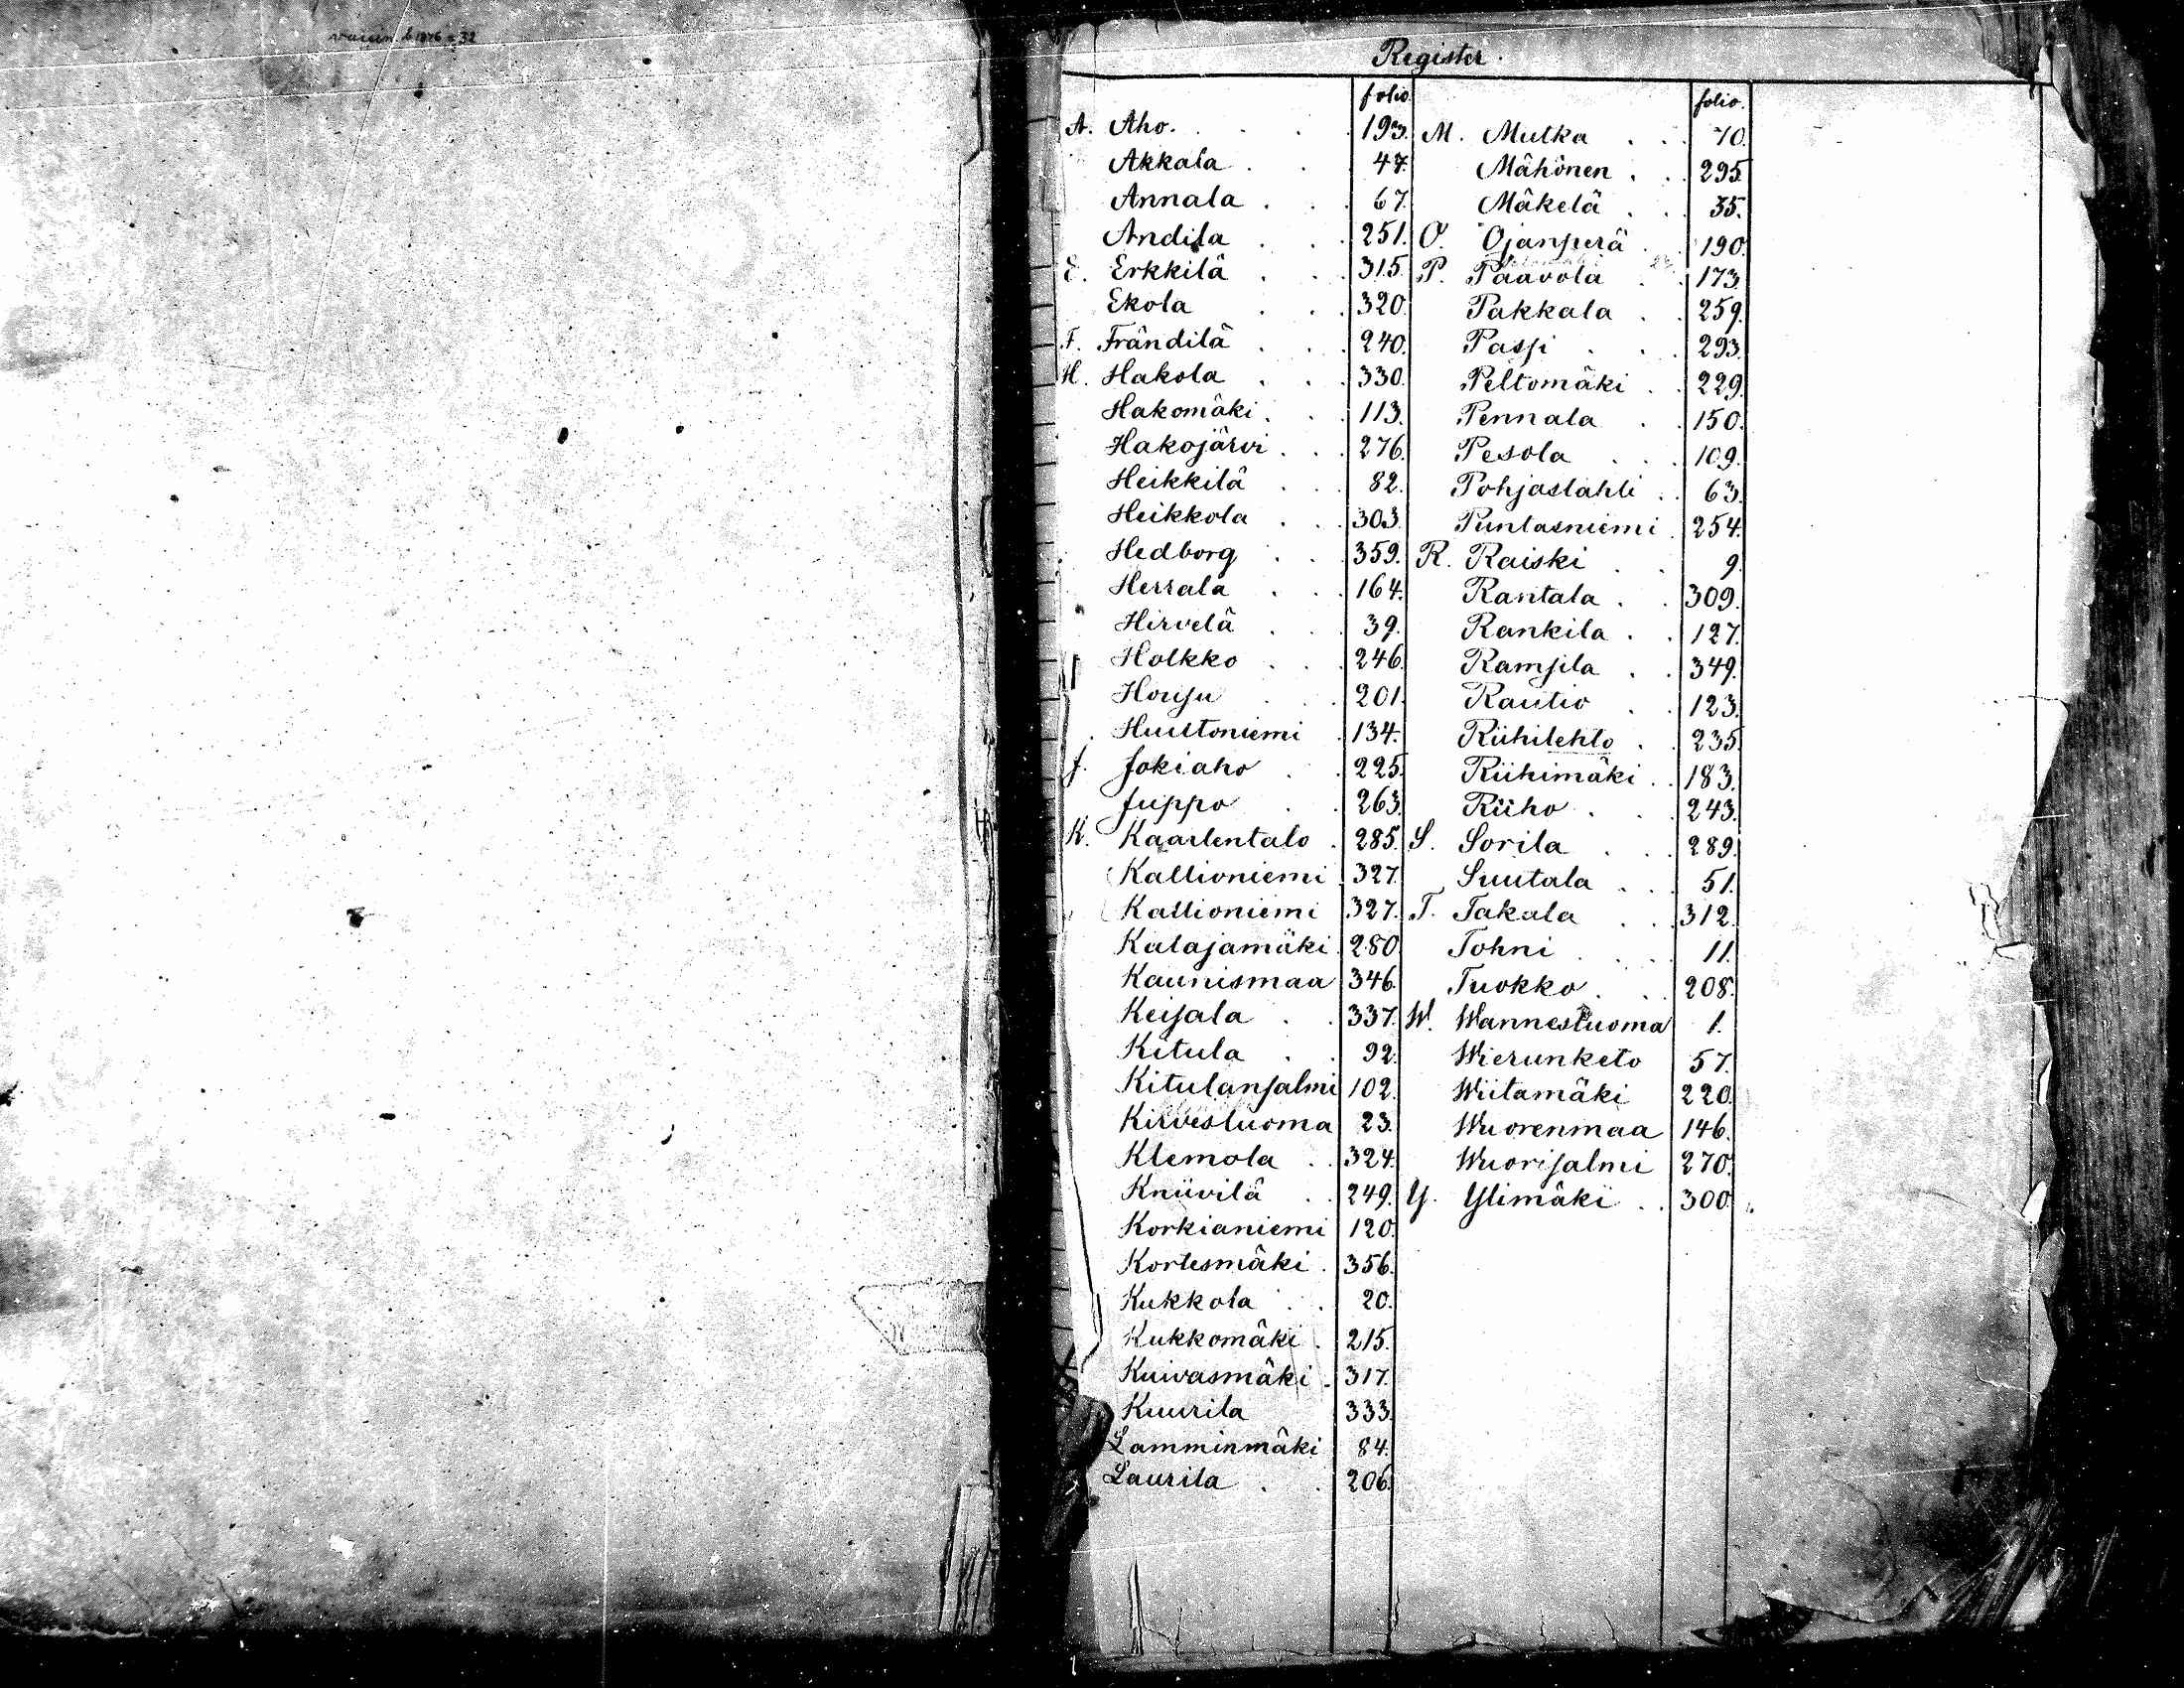 Register.
folio
A. Aho. 193.
Akkala 47.
Annala 67.
Andila 251.
E. Erkkilä 315.
Ekola 320.
F. Frändilä 240.
H. Hakola 330.
Hakomäki 113.
Hakojärvi 276.
Heikkilä 82.
Heikkola 303.
Hedborg 359.
Herrala 164.
Hirvelä 39.
Holkko 246.
Houſu 201.
Huultoniemi 134.
J. Jokiaho 225.
Juppo 263.
K. Kaarlentalo 285.
Kallioniemi 327.
Kallioniemi 327.
Katajamäki 280.
Kaunismaa 346.
Keiſala 337.
Kitula 92.
Kitulanſalmi 102.
Kirvesluoma 23.
Klemola 324.
Kniivilä 249.
Korkianiemi 120.
Kortesmäki 356.
Kukkola 20.
Kukkomäki 215.
Kuivasmäki 317.
Kuurila 333.
Lamminmäki 84.
Laurila 206.
folio.
M. Mutka 70.
Mähönen 295.
Mäkelä 35.
O. Ojanperä 190.
P. Paavola 173.
Pakkala 259.
Pasſi 293.
Peltomäki 229.
Pennala 150.
Pesola 109.
Pohjaslahti 63.
Puntasniemi 254.
R. Raiski 9.
Rantala 309.
Rankila 127.
Ramſila 349.
Rautio 123.
Riihilehto 235.
Riihimäki 183.
Riiho 243.
S. Sorila 289.
Suutala 51.
T. Takala 312.
Tohni 11.
Tuokko 208.
W. Wannesluoma 1.
Wierunketo 57.
Wiitamäki 220.
Wuorenmaa 146.
Wuoriſalmi 270.
Y. Ylimäki 300.